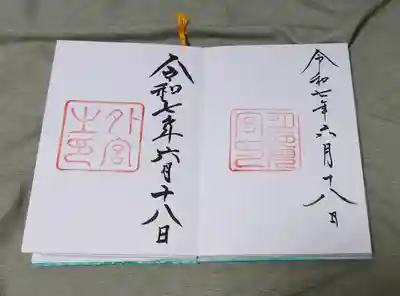 令和七年六月十八日
令和七年六月十八日
外宮
之印